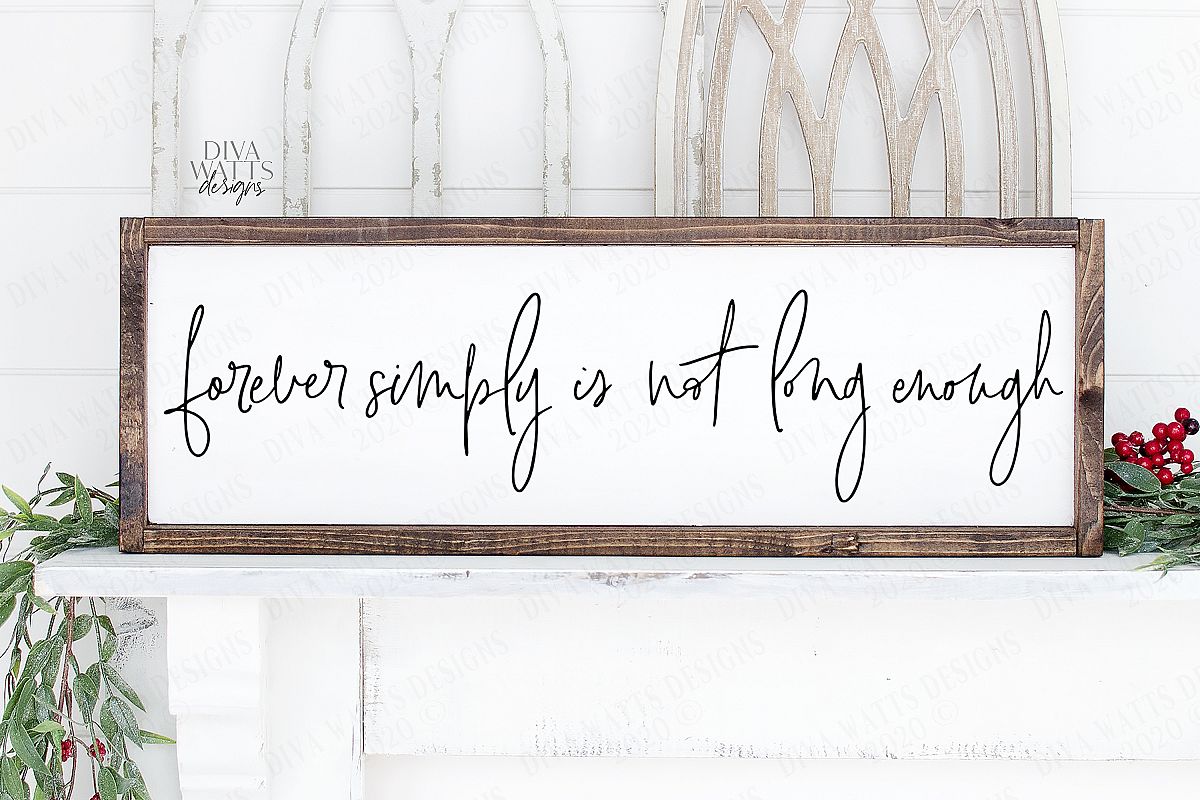 DIVA
WATTS
designs
forever simply is not long enough
DIVA WATTS DESIGNS
2020 ©